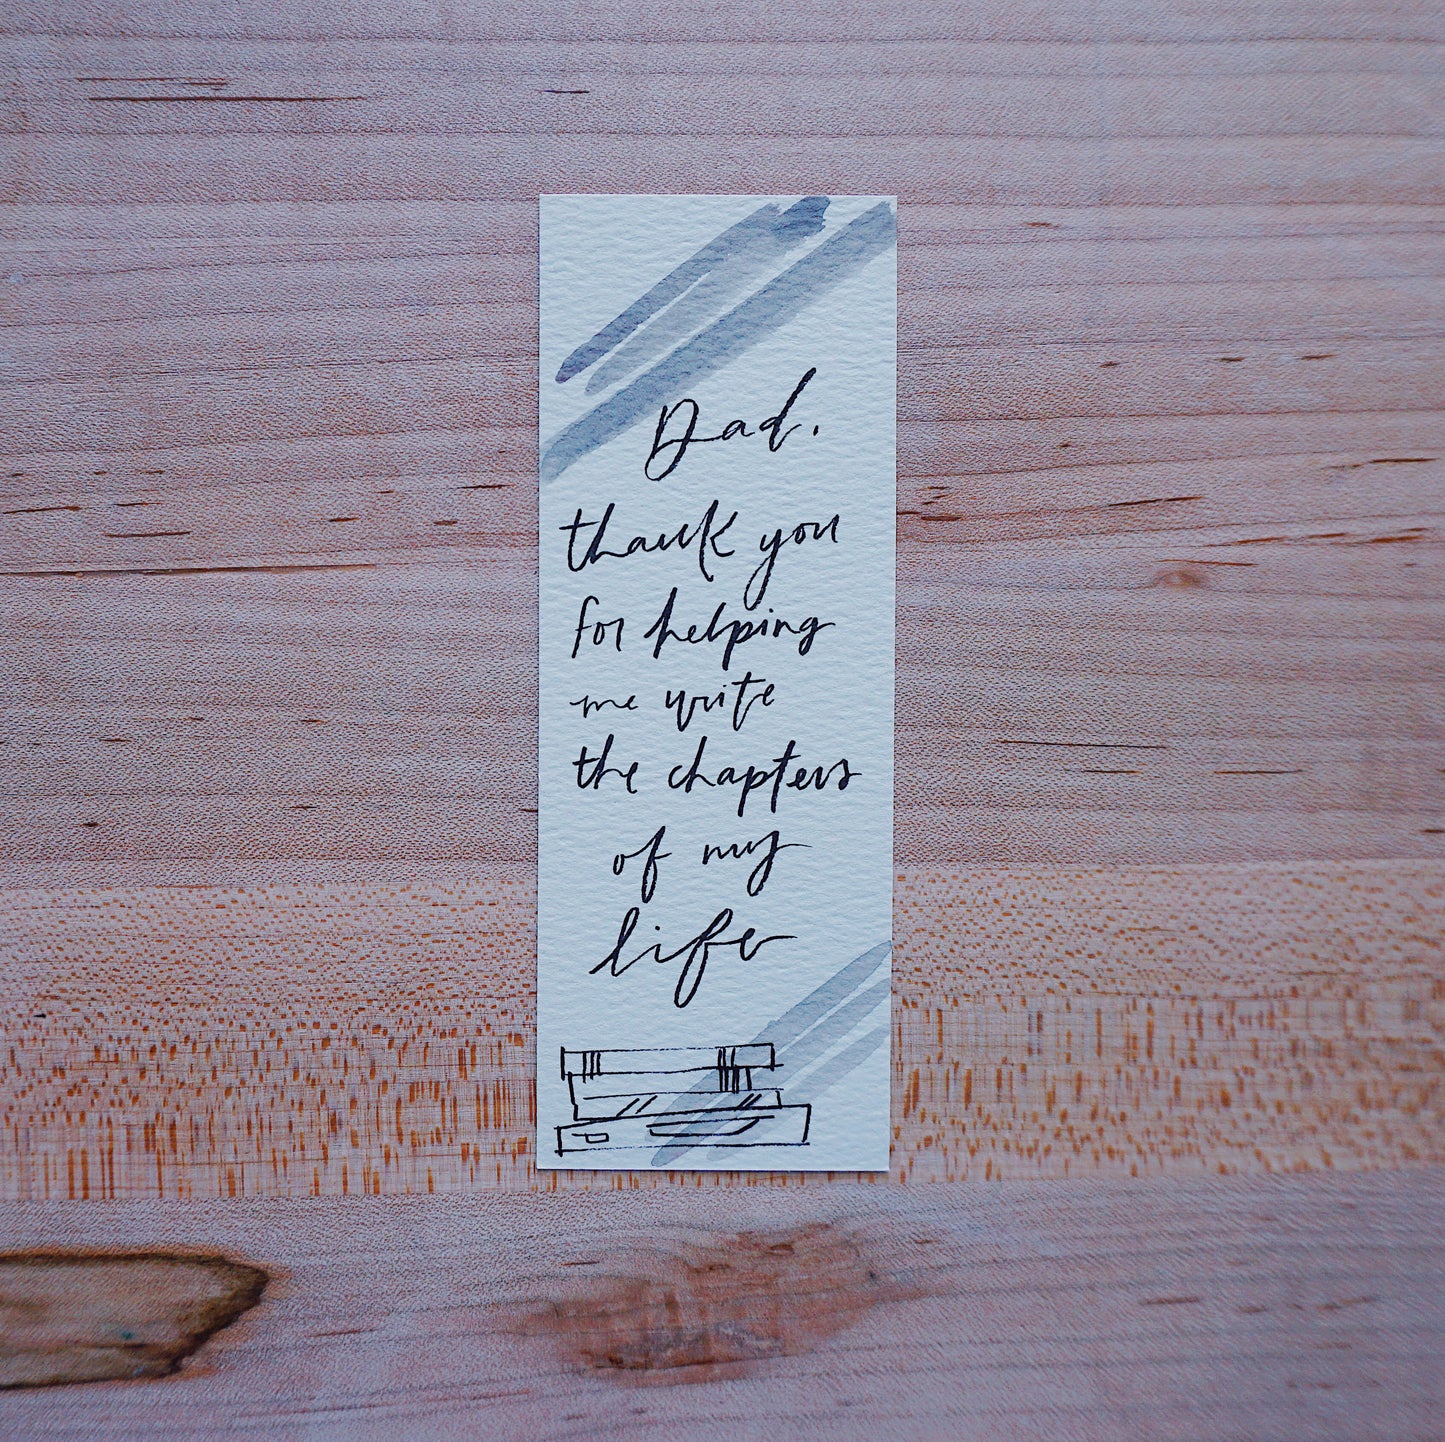 Dad,
thank you
for helping
me write
the chapters
of my
life